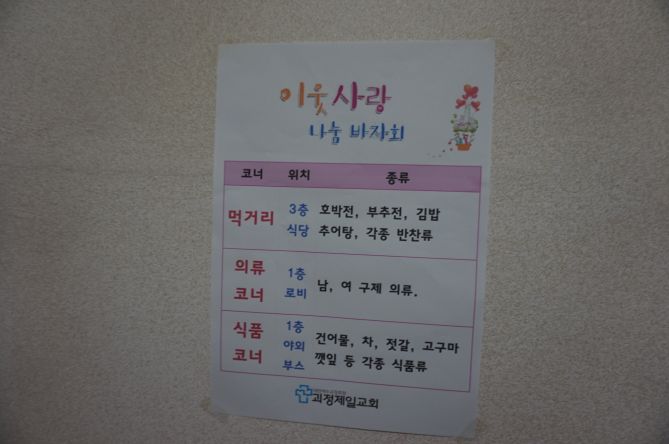 이웃사랑
나눔 바자회
코너 위치 종류
먹거리 3층 식당 호박전, 부추전, 김밥
추어탕, 각종 반찬류
의류 코너 1층 로비 남, 여 구제 의류.
식품 코너 1층 야외 부스 건어물, 차, 젓갈, 고구마
깻잎 등 각종 식품류
괴정제일교회